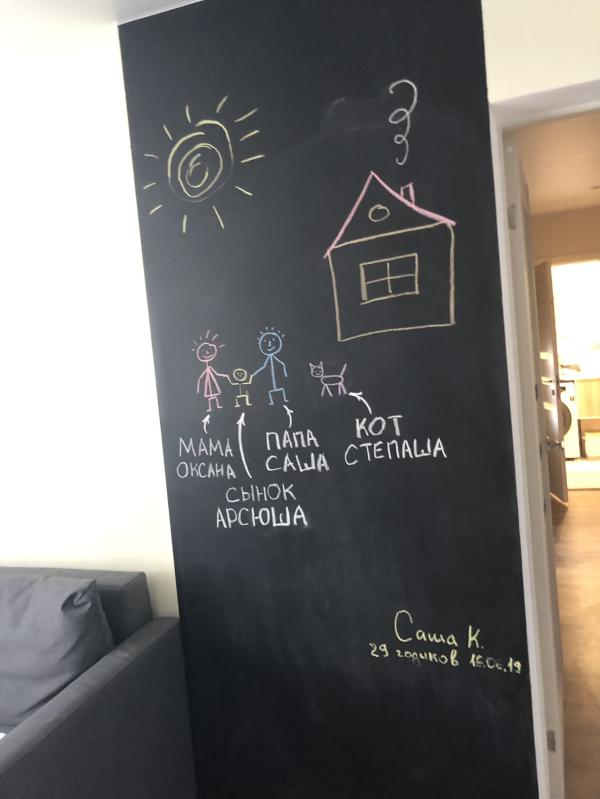 МАМА
ОКСАНА
ПАПА
САША
КОТ
СТЕПАША
СЫНОК
АРСЮША
Саша К.
29 годиков 16.06.19